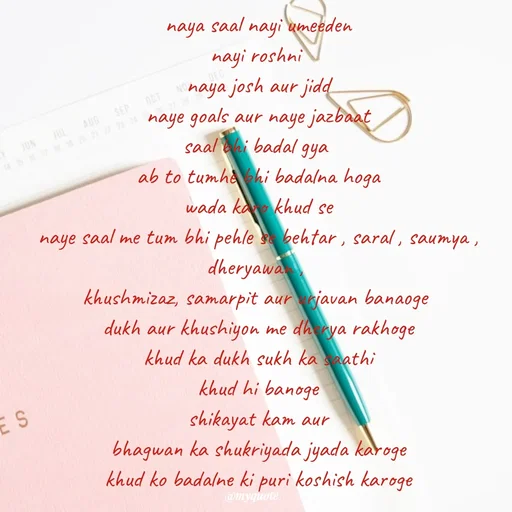 naya saal nayi umeeden
nayi roshni
naya josh aur jidd
naye goals aur naye jazbaat
saal bhi badal gya
ab to tumhe bhi badalna hoga
wada karo khud se
naye saal me tum bhi pehle se behtar , saral , saumya ,
dheryawan ,
khushmizaz, samarpit aur urjavan banaoge
dukh aur khushiyon me dherya rakhoge
khud ka dukh sukh ka saathi
khud hi banoge
shikayat kam aur
bhagwan ka shukriyada jyada karoge
khud ko badalne ki puri koshish karoge
JUN JUL AUG SEP OCT NOV DEC
ES